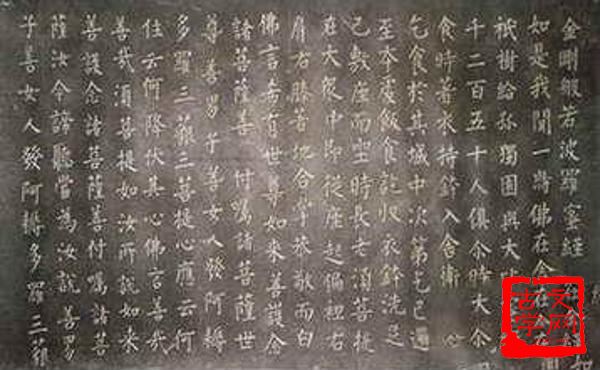 金剛般若波羅蜜經
如是我聞一時佛在舍
祇樹給孤獨園與大
千二百五十人俱尒時大
食時著衣持鉢入舍衛
乞食於其城中次第乞已還
至本處飯食訖收衣鉢洗足
已敷座而坐時長老須菩提
在大衆中即從座起偏袒右
肩右膝著地合掌恭敬而白
佛言希有世尊如來善護念
諸菩薩善付囑諸菩薩世
尊善男子善女人發阿耨
多羅三藐三菩提心應云何
住云何降伏其心佛言善哉
善哉須菩提如汝所說如來
善護念諸菩薩善付囑諸菩
薩汝今諦聽當爲汝說善男
子善女人發阿耨多羅三藐